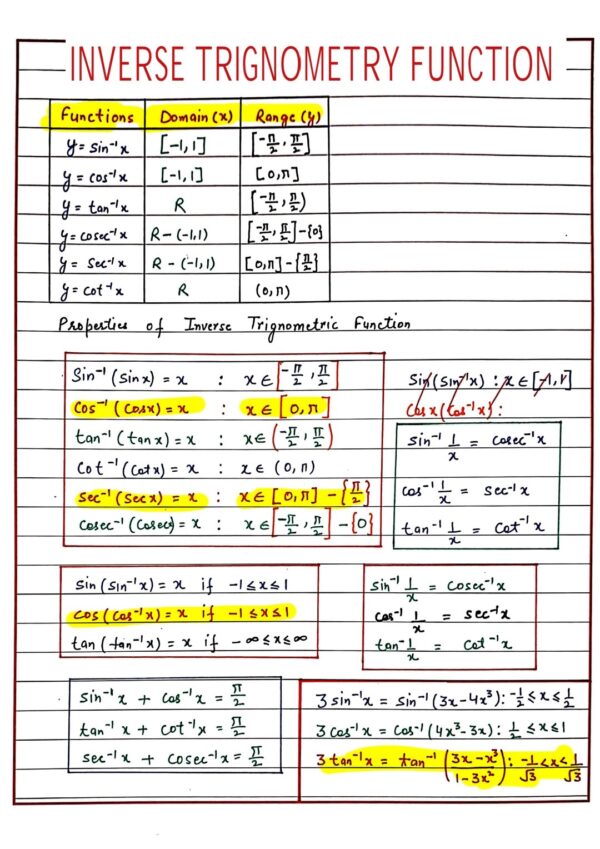 INVERSE TRIGNOMETRY FUNCTION
Functions Domain (x) Range (y)
y = sin⁻¹x [-1, 1] [-π/2, π/2]
y = cos⁻¹x [-1, 1] [0, π]
y = tan⁻¹x R [-π/2, π/2)
y = cosec⁻¹x R - (-1,1) [-π/2, π/2] - {0}
y = sec⁻¹x R - (-1,1) [0, π] - {π/2}
y = cot⁻¹x R (0, π)
Properties of Inverse Trignometric Function
Sin⁻¹ (sin x) = x : x ∈ [-π/2, π/2]
cos⁻¹ (cosx) = x : x ∈ [0, π]
tan⁻¹ (tan x) = x : x ∈ (-π/2, π/2)
cot⁻¹ (cotx) = x : x ∈ (0, π)
sec⁻¹ (sec x) = x : x ∈ [0, π] - {π/2}
cosec⁻¹ (cosec) = x : x ∈ [-π/2, π/2] - {0}
Sin (sin⁻¹x) : x ∈ [-1, 1]
Cos x (cos⁻¹x) :
sin⁻¹ 1/x = cosec⁻¹x
cos⁻¹ 1/x = sec⁻¹x
tan⁻¹ 1/x = cot⁻¹x
sin (sin⁻¹x) = x if -1 ≤ x ≤ 1
cos (cos⁻¹x) = x if -1 ≤ x ≤ 1
tan (tan⁻¹x) = x if -∞ ≤ x ≤ ∞
sin⁻¹ 1/x = cosec⁻¹x
cos⁻¹ 1/x = sec⁻¹x
tan⁻¹ 1/x = cot⁻¹x
sin⁻¹x + cos⁻¹x = π/2
tan⁻¹x + cot⁻¹x = π/2
sec⁻¹x + cosec⁻¹x = π/2
3 sin⁻¹x = sin⁻¹ (3x - 4x³) : -1/2 ≤ x ≤ 1/2
3 cos⁻¹x = cos⁻¹ (4x³ - 3x) : 1/2 ≤ x ≤ 1
3 tan⁻¹x = tan⁻¹ (3x - x³/1 - 3x²) : -1/√3 < x < 1/√3